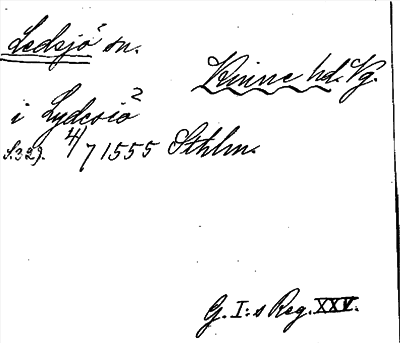 Ledsjö sn.
Kinne hd. Vg.
i Lydcoio 2
S. 329. 4/7 1555 Sthlm.
G. I:s Reg. XXV.